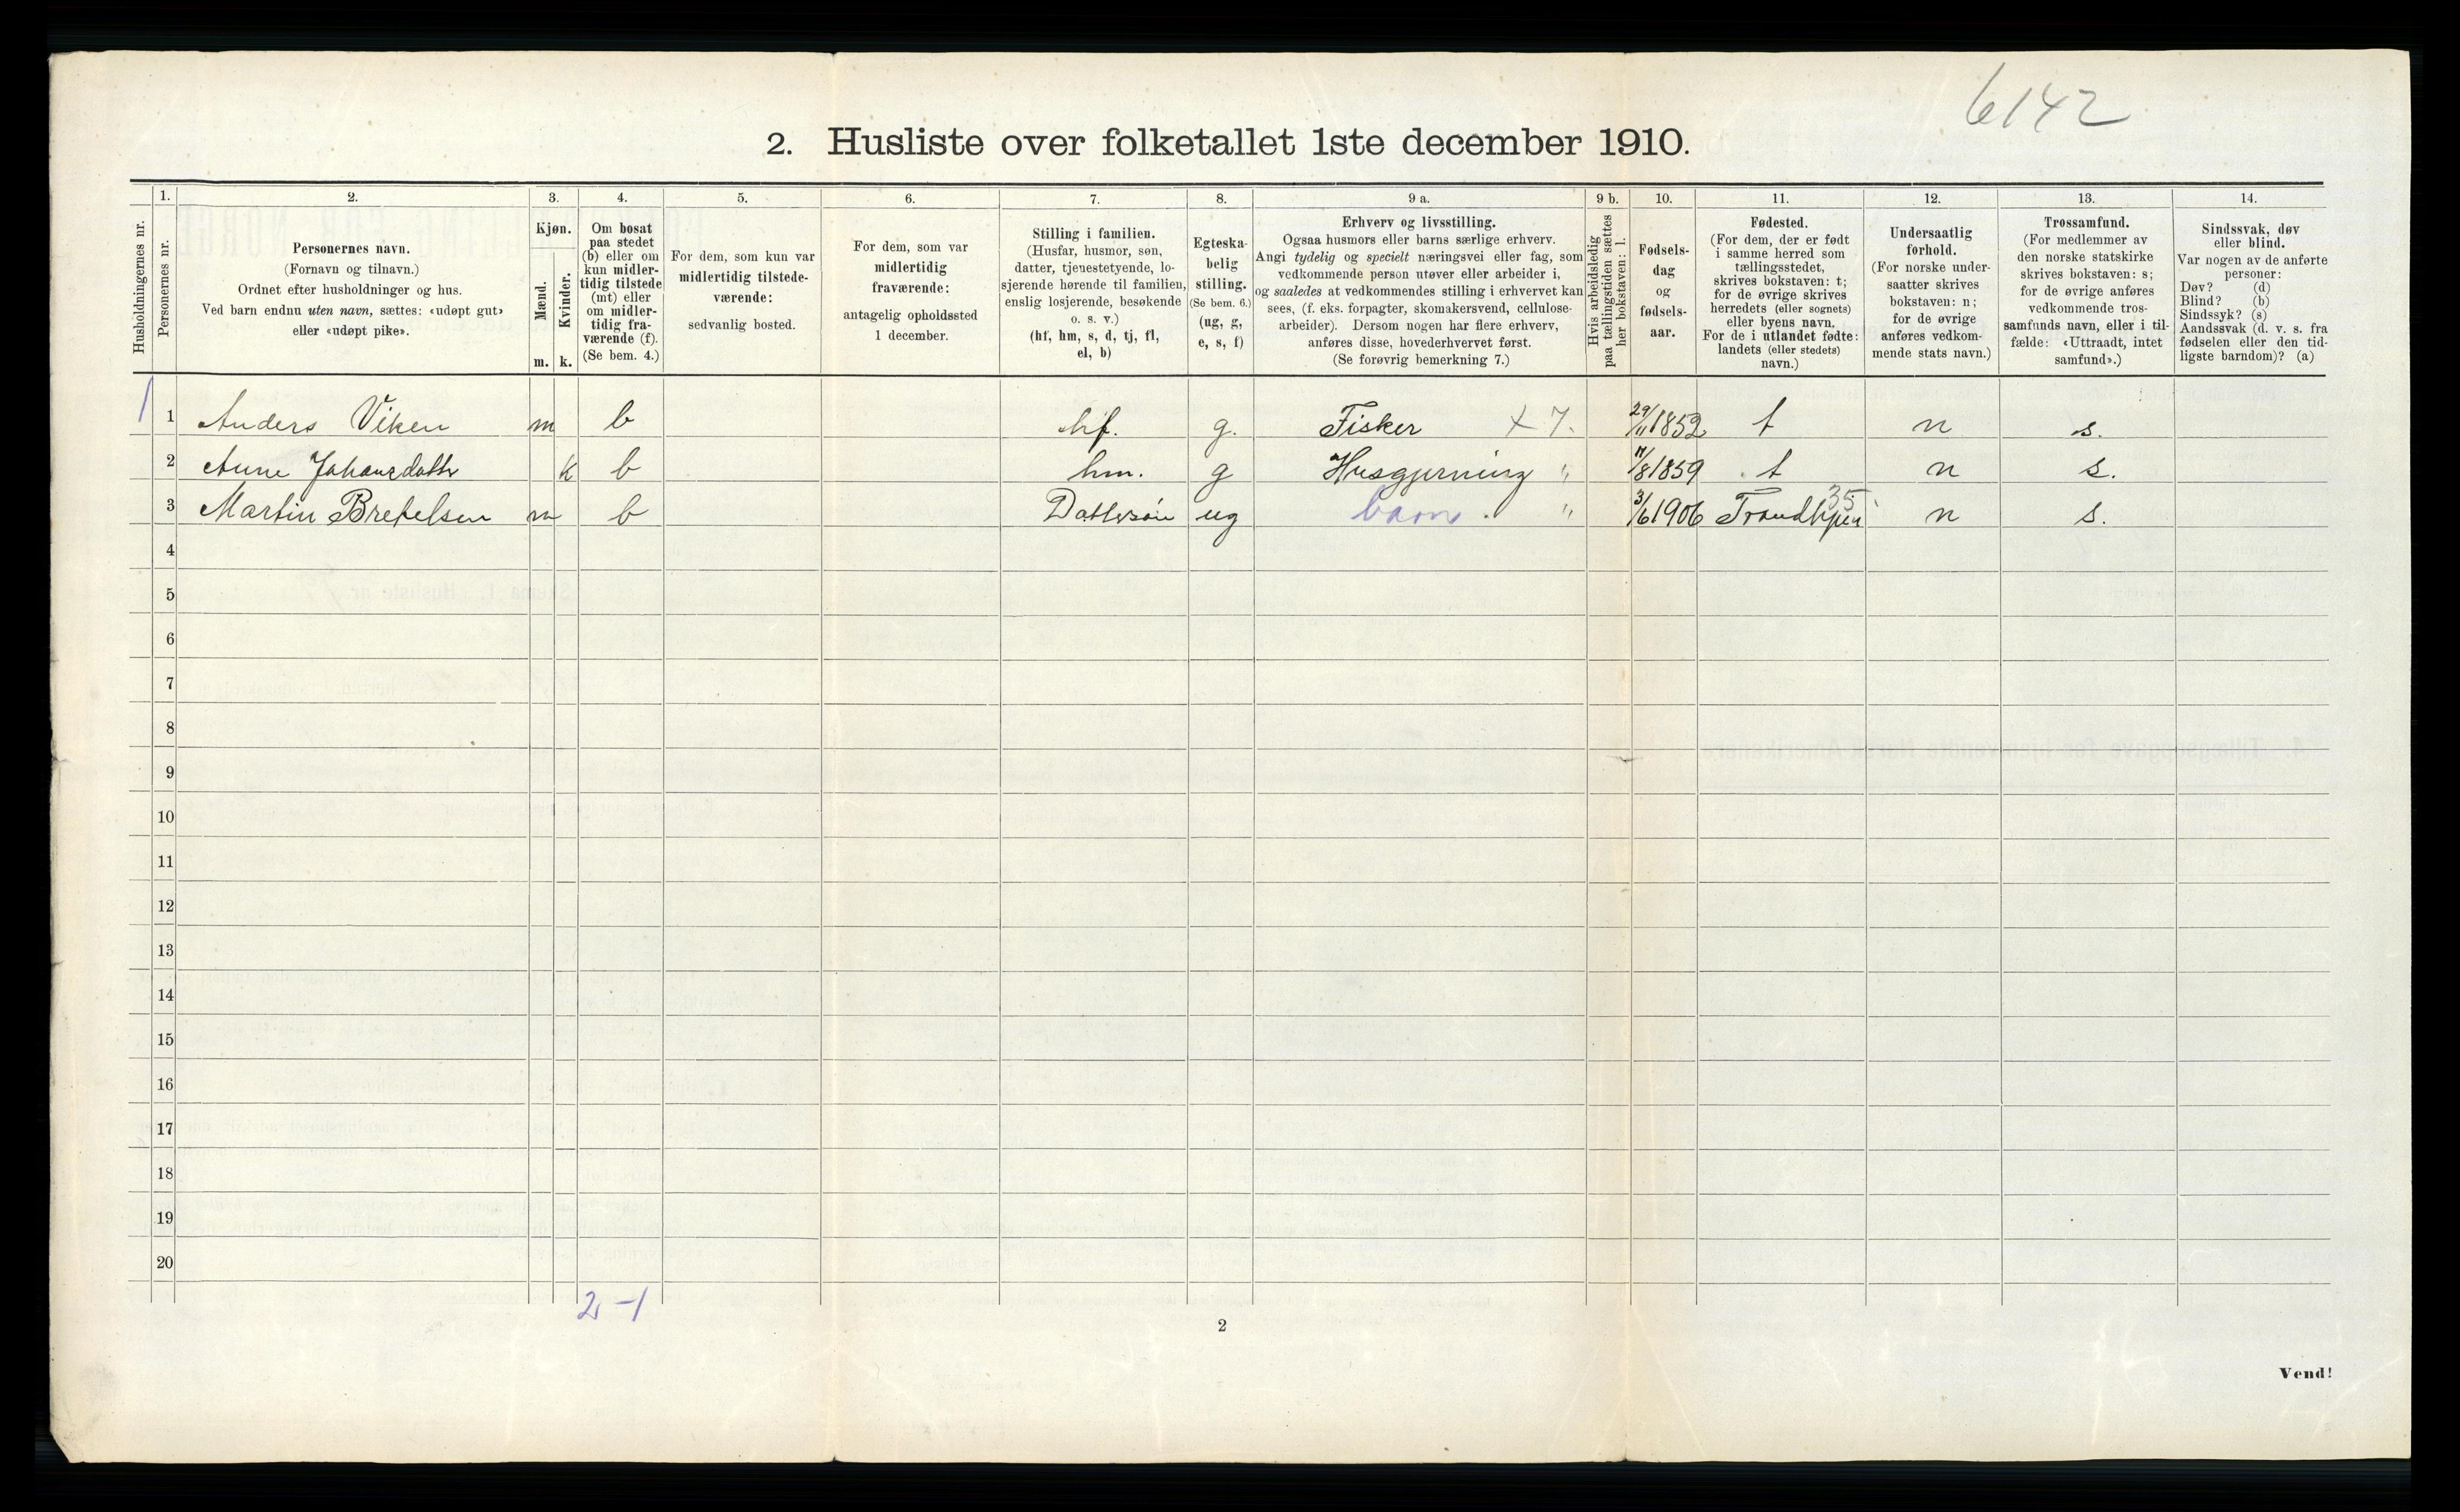 6142
2. Husliste over folketallet 1ste december 1910.
Husholdningernes nr.
1.
Personernes nr.
2.
Personernes navn.
(Fornavn og tilnavn.)
Ordnet efter husholdninger og hus.
Ved barn endnu uten navn, sættes: «udøpt gut»
eller «udøpt pike».
3.
Kjøn.
Mænd.
Kvinder.
m. k.
4.
Om bosat
paa stedet
(b) eller om
kun midler-
tidig tilstede
(mt) eller
om midler-
tidig fra-
værende (f).
(Se bem. 4.)
5.
For dem, som kun var
midlertidig tilstede-
værende:
sedvanlig bosted.
6.
For dem, som var
midlertidig
fraværende:
antagelig opholdssted
1 december.
7.
Stilling i familien.
(Husfar, husmor, søn,
datter, tjenestetyende, lo-
sjerende hørende til familien,
enslig losjerende, besøkende
o. s. v.)
(hf, hm, s, d, tj, fl,
el, b)
8.
Egteska-
belig
stilling.
(Se bem. 6.)
(ug, g,
e, s, f)
9 a.
Erhverv og livsstilling.
Ogsaa husmors eller barns særlige erhverv.
Angi tydelig og specielt næringsvei eller fag, som
vedkommende person utøver eller arbeider i,
og saaledes at vedkommendes stilling i erhvervet kan
sees, (f. eks. forpagter, skomakersvend, cellulose-
arbeider). Dersom nogen har flere erhverv,
anføres disse, hovederhvervet først.
(Se forøvrig bemerkning 7.)
9 b.
Hvis arbeidsledig
paa tællingstiden sættes
her bokstaven: l.
10.
Fødsels-
dag
og
fødsels-
aar.
11.
Fødested.
(For dem, der er født
i samme herred som
tællingsstedet,
skrives bokstaven: t;
for de øvrige skrives
herredets (eller sognets)
eller byens navn.
For de i utlandet fødte:
landets (eller stedets)
navn.)
12.
Undersaatlig
forhold.
(For norske under-
saatter skrives
bokstaven: n;
for de øvrige
anføres vedkom-
mende stats navn.)
13.
Trossamfund.
(For medlemmer av
den norske statskirke
skrives bokstaven: s;
for de øvrige anføres
vedkommende tros-
samfunds navn, eller i til-
fælde: «Uttraadt, intet
samfund».)
14.
Sindssvak, døv
eller blind.
Var nogen av de anførte
personer:
Døv? (d)
Blind? (b)
Sindssyk? (s)
Aandssvak (d. v. s. fra
fødselen eller den tid-
ligste barndom)? (a)
1 1 Anders Viken m b hf. g. Fisker x 7. 29/11 1852 t n s.
2 Anne Johansdatter k b hm. g Husgjerning " 11/8 1859 t n s.
3 Martin Bretelsen m b Dattersøn ug barn . " 3/6 1906 Trondhjem 35 n s.
4
5
6
7
8
9
10
11
12
13
14
15
16
17
18
19
20
2-1
2
Vend!